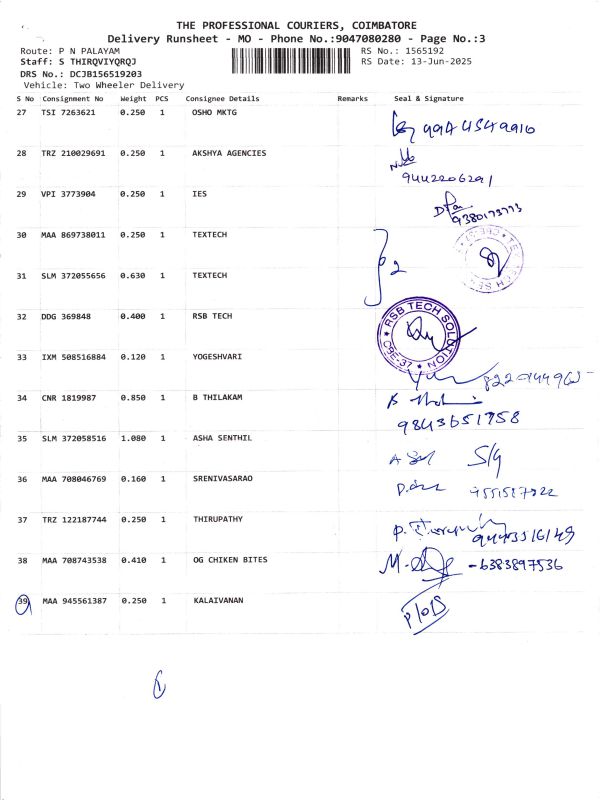 THE PROFESSIONAL COURIERS, COIMBATORE
Delivery Runsheet - MO - Phone No.:9047080280 - Page No.:3
Route: P N PALAYAM RS No.: 1565192
Staff: S THIRQVIYQRQJ RS Date: 13-Jun-2025
DRS No.: DCJB156519203
Vehicle: Two Wheeler Delivery
S No Consignment No Weight PCS Consignee Details Remarks Seal & Signature
27 TSI 7263621 0.250 1 OSHO MKTG
28 TRZ 210029691 0.250 1 AKSHYA AGENCIES
9442206291
29 VPI 3773904 0.250 1 IES
9380173773
30 MAA 869738011 0.250 1 TEXTECH
2
31 SLM 372055656 0.630 1 TEXTECH
32 DDG 369848 0.400 1 RSB TECH
RSB TECH SOLUTION
33 IXM 508516884 0.120 1 YOGESHVARI
34 CNR 1819987 0.850 1 B THILAKAM
9843651758
35 SLM 372058516 1.080 1 ASHA SENTHIL
36 MAA 708046769 0.160 1 SRENIVASARAO
37 TRZ 122187744 0.250 1 THIRUPATHY
38 MAA 708743538 0.410 1 OG CHIKEN BITES
-6383897536
39 MAA 945561387 0.250 1 KALAIVANAN